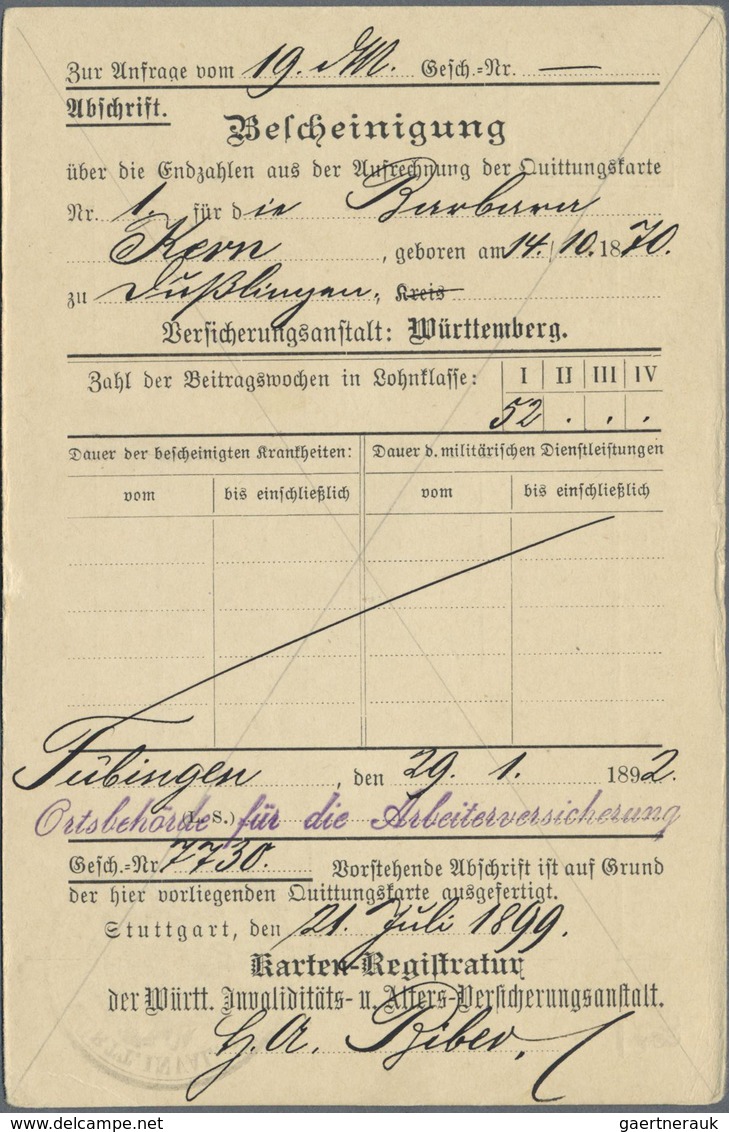 Zur Anfrage vom 19. d.M. Gesch.=Nr. —
Abschrift.
Bescheinigung
über die Endzahlen aus der Aufrechnung der Quittungskarte
Nr. 1. für die Barbara
Kern, geboren am 14. 10. 1870.
zu Dußlingen, Kreis
Versicherungsanstalt: Württemberg.
Zahl der Beitragswochen in Lohnklasse: I II III IV
52 . . .
Dauer der bescheinigten Krankheiten: Dauer d. militärischen Dienstleistungen
vom bis einschließlich vom bis einschließlich
Tübingen, den 29. 1. 1892.
(L. S.)
Ortsbehörde für die Arbeiterversicherung
Gesch.=Nr. 7730. Vorstehende Abschrift ist auf Grund
der hier vorliegenden Quittungskarte ausgefertigt.
Stuttgart, den 21. Juli 1899.
Karten-Registratur
der Württ. Invaliditäts- u. Alters-Versicherungsanstalt.
H. A. Biber.
gaertnerauk